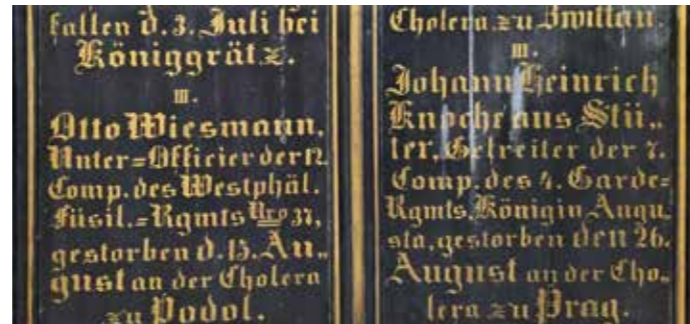 fallen d. 3. Juli bei
Königgrätz.
III.
Otto Wiesmann,
Unter=Officier der 12.
Comp. des Westphäl.
Füsil.=Rgmts Nro 37,
gestorben d. 15. Au„
gust an der Cholera
zu Podol.
Cholera zu Zwittau.
III.
Johann Heinrich
Knoche aus Stü„
ter, Gefreiter der 7.
Comp. des 4. Garde=
Rgmts. Königin Augu„
sta, gestorben den 26.
August an der Cho„
lera zu Prag.